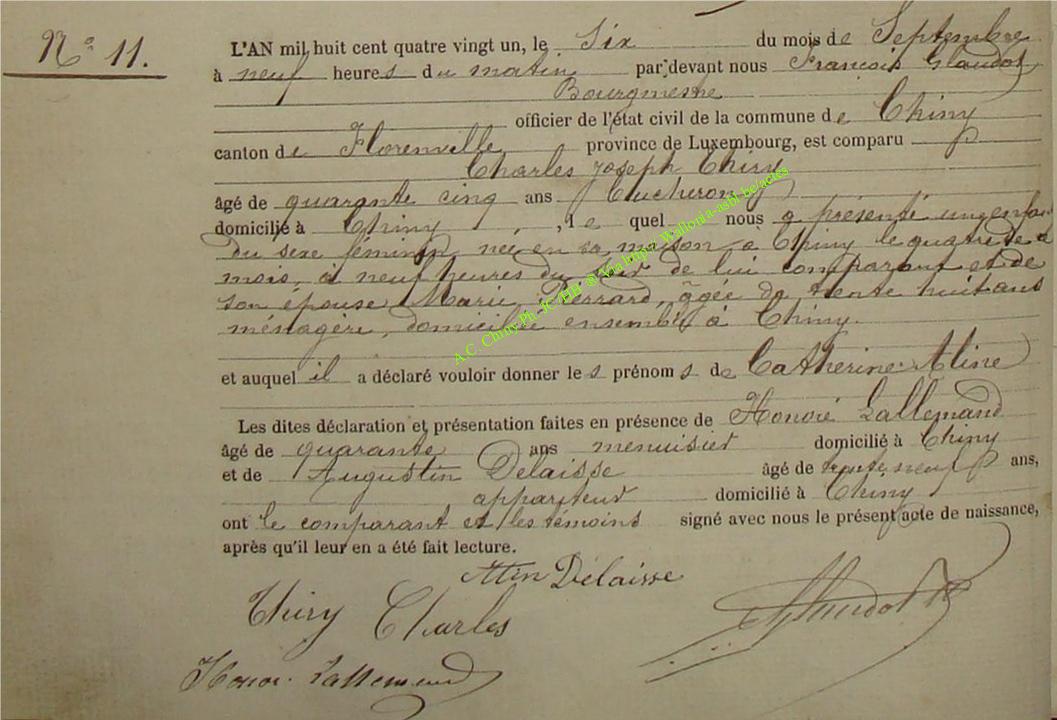 N° 11.
L'AN mil huit cent quatre vingt un, le Six du mois de Septembre
à neuf heures du matin par devant nous François Glaudot
Bourgmestre
officier de l'état civil de la commune de Chiny
canton de Florenville province de Luxembourg, est comparu
Charles Joseph Thiry
âgé de quarante cinq ans bucheron
domicilié à Chiny, le quel nous a présenté un enfant
du sexe féminin née en sa maison à Chiny le quatre de
mois, à neuf heures du soir de lui comparant et de
son épouse Marie Perrard, âgée de trente huit ans
ménagère, domicilié ensemble à Chiny.
et auquel il a déclaré vouloir donner les prénoms de Catherine Aline
Les dites déclaration et présentation faites en présence de Honoré Lallemand
âgé de quarante ans menuisier domicilié à Chiny
et de Augustin Delaisse âgé de trente neuf ans,
appariteur domicilié à Chiny
ont le comparant et les témoins signé avec nous le présent acte de naissance,
après qu'il leur en a été fait lecture.
Atin Délaisse
Thiry Charles
Glaudot
Honor. Lallemand
A.C. Chiny-Ph. JC. HH @ Via https Wallonia-asbl be/actes